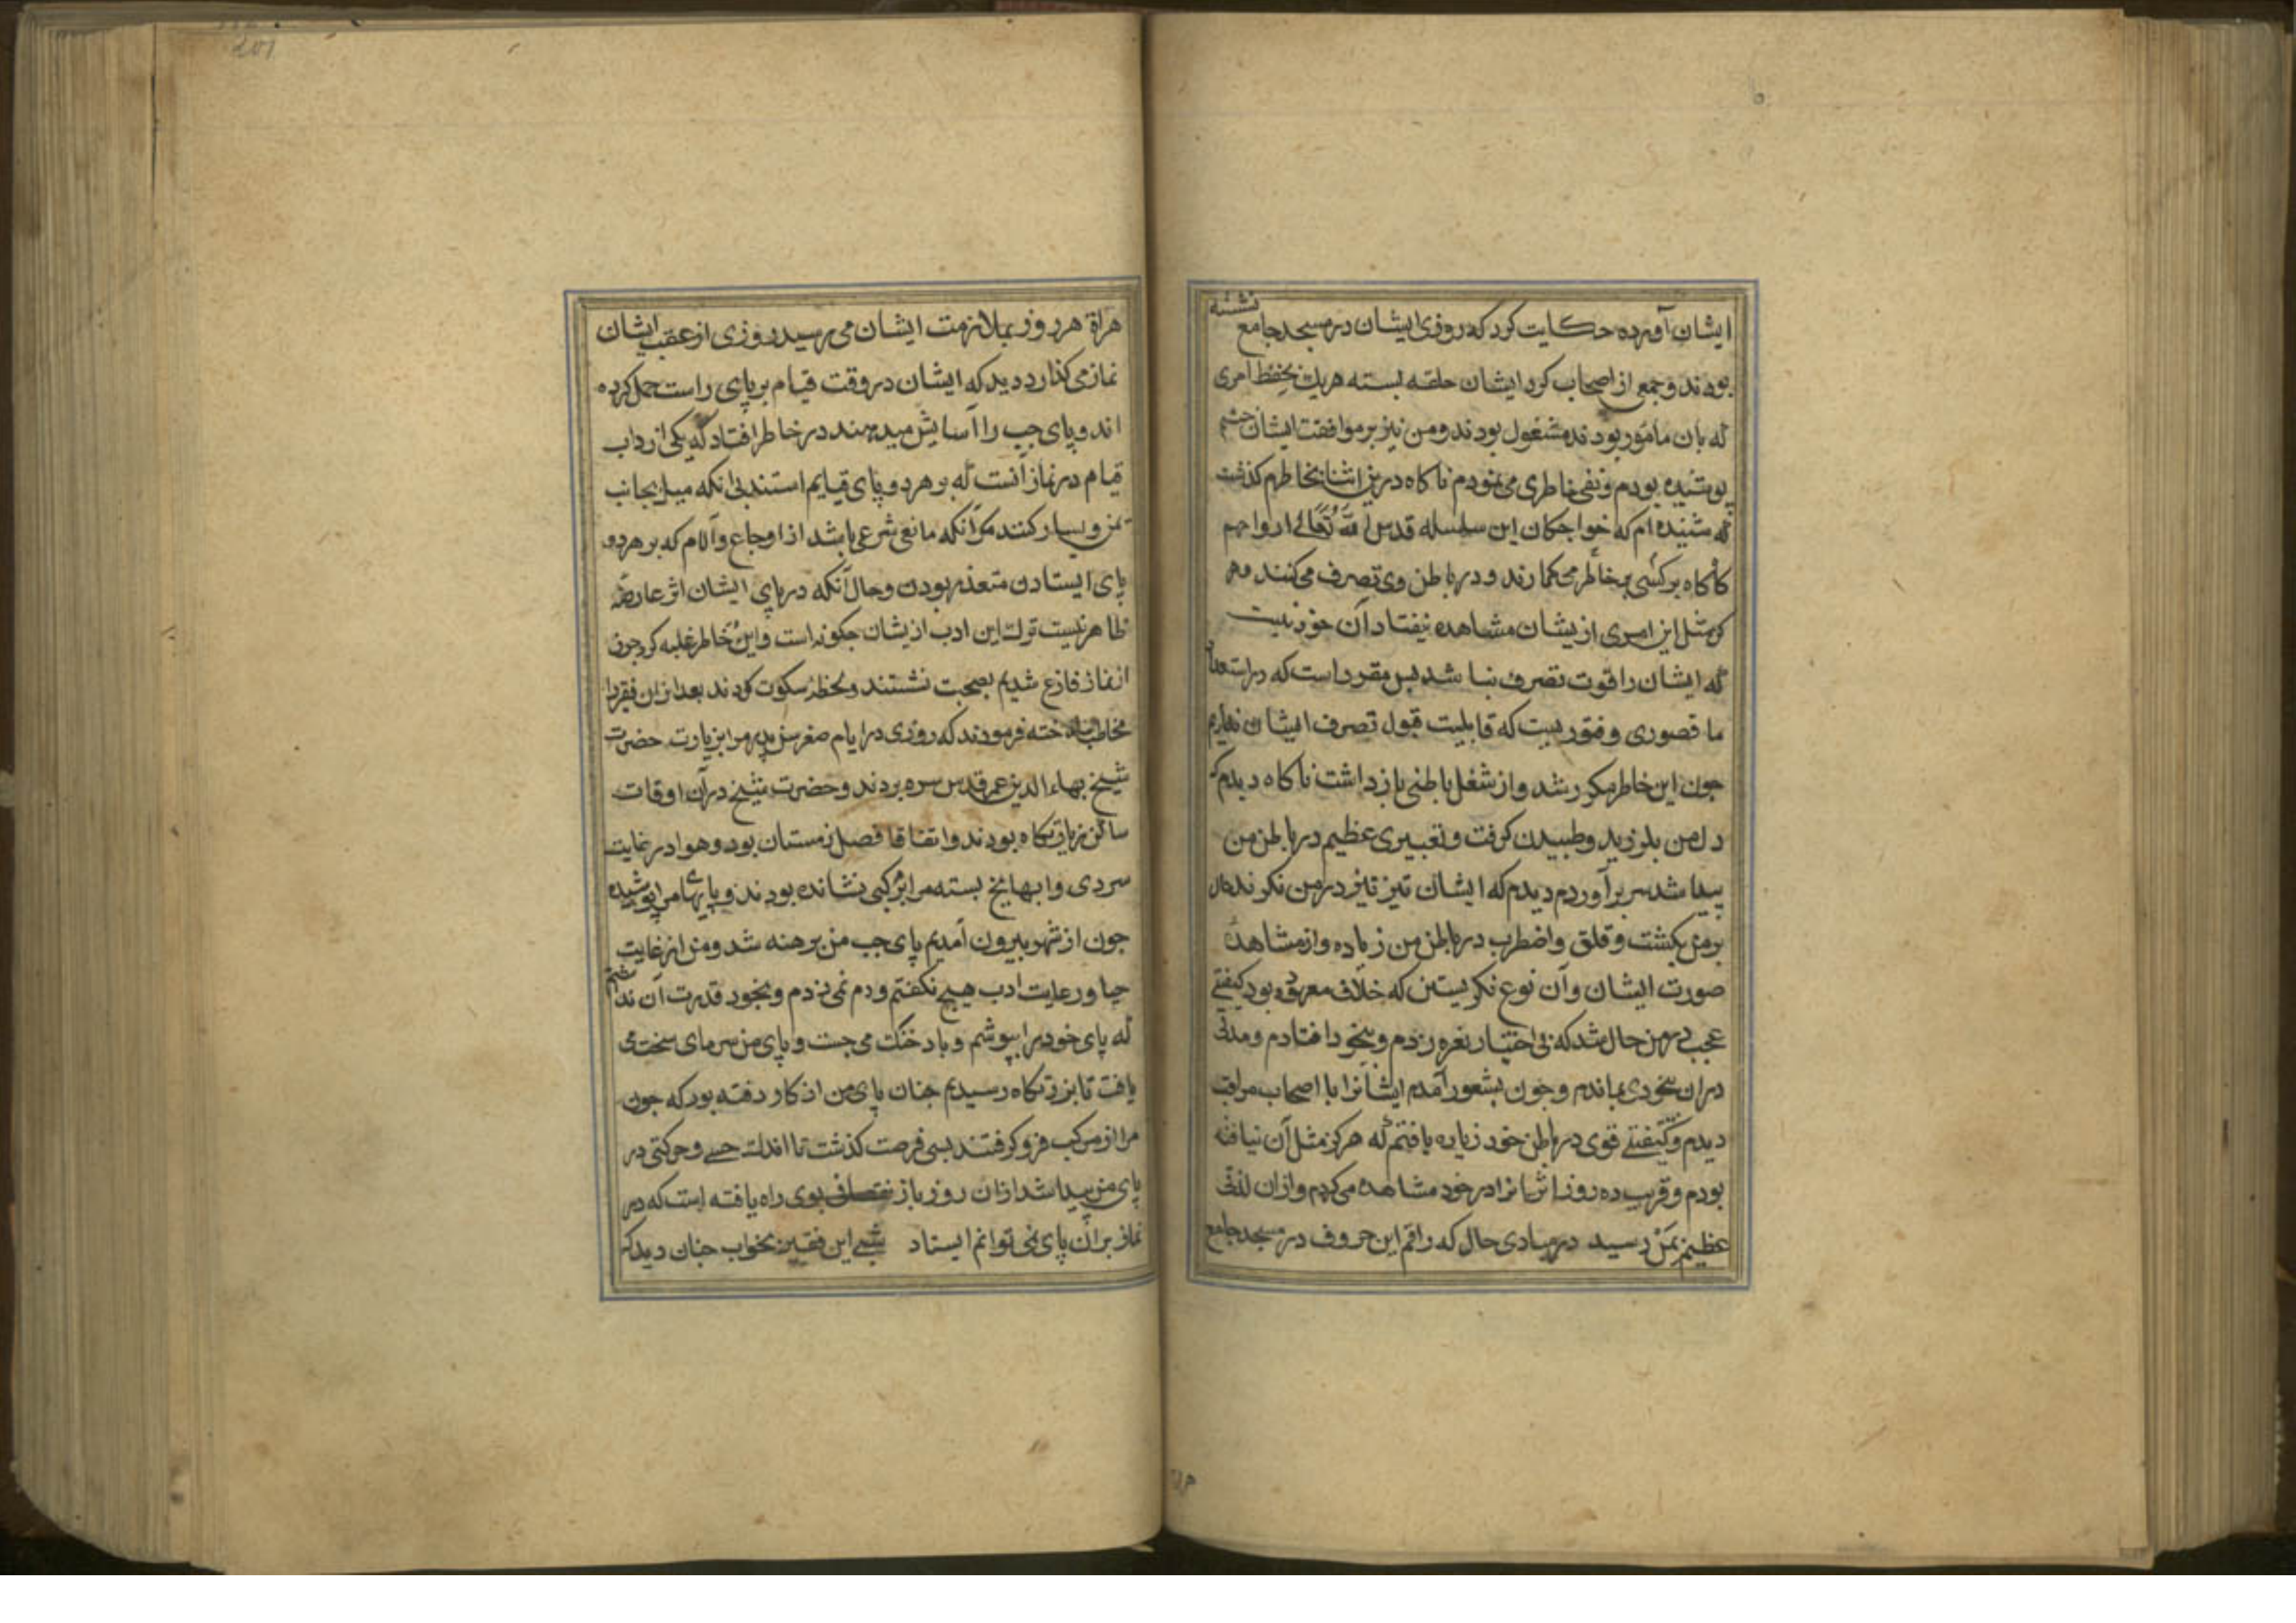 نشسته
ایشان آورده حکایت کرد که روزی ایشان در مسجد جامع
بودند و جمعی از اصحاب کرد ایشان حلقه بسته هریک بحفظ امری
که بان مامور بودند مشغول بودند و من نیز بر موافقت ایشان چشم
پوشیده بودم و نفی خاطری می نمودم ناکاه درین اثنا بخاطرم کذشت
که شنیده ام که خواجکان این سلسله قدس الله تعالی ارواحهم
کاه کاه بر کسی خاطر می کمارند و در باطن وی تصرف می کنند
کی مثل این امری ازیشان مشاهده نیفتاد آن خود نیست
که ایشان را قوت تصرف نباشد پس مقرر است که در استعداد
ما قصوری و فتوریست که قابلیت قبول تصرف ایشان نداریم
جون این خاطر مکرر شد و از شغل باطنی باز داشت ناکاه دیدم که
دل من بلرزید و طبیدن کرفت و تغییری عظیم در باطن من
پیدا شد سر برآوردم دیدم که ایشان تیز تیز در من نکرند حال
بر من بکشت و قلق و اضطراب در باطن من زیاده و از مشاهدهٔ
صورت ایشان و آن نوع نکریستن که خلاف معهود بود کیفیتی
عجب بر من حال شد که بی اختیار نعره زدم و بیخود افتادم و مدتی
دران بیخودی بماندم و جون بشعور آمدم ایشانرا با اصحاب مراقب
دیدم و کیفیتی قوی در باطن خود زیاده یافتم که هرکز مثل آن نیافته
بودم و قریب ده روز اثر آنرا در خود مشاهده می کردم و ازان لذتی
عظیم بمن رسید در مبادی حال که راقم این حروف در مسجد جامع
هراة هر روز بملازمت ایشان می رسید روزی از عقب ایشان
نماز می کذارد دید که ایشان در وقت قیام بر پای راست حمل کرده
اند و پای جب را آسایش میدهند در خاطر افتاد که یکی از آداب
قیام در نماز آنست که بر هر دو پای قیایم استند بی انکه میل بجانب
یمن و یسار کنند مکر آنکه مانعی شرعی باشد از اوجاع و آلام که بر هر دو
پای ایستادن متعذر بودن و حال آنکه در پای ایشان اثر عارضه
ظاهر نیست ترک این ادب ازیشان جکونه است و این خاطر غلبه کرد جون
از نماز فارغ شدیم بصحبت نشستند و لحظهٔ سکوت کردند بعد ازان فقیر را
مخاطب ساخته فرمودند که روزی در ایام صغر سن پدر مرا بزیارت حضرت
شیخ بهاء الدین عمر قدس سره بردند و حضرت شیخ در آن اوقات
ساکن زیارتکاه بودند و اتفاقا فصل زمستان بود و هوا در غایت
سردی و ابها یخ بسته مرا بر مرکبی نشانده بودند و پایهای مرا پوشیده
جون از شهر بیرون آمدیم پای جب من برهنه شد و من از غایت
حیا و رعایت ادب هیچ نکفتم و دم نمی زدم و بخود قدرت آن نداشتم
که پای خود را بپوشم و باد خنک می جست و پای من سرمای سخت می
یافت تا بزیارتکاه رسیدیم جنان پای من از کار رفته بود که جون
مرا از مرکب فرو کرفتند بسی فرصت کذشت تا اندک حسی و حرکتی در
پای من پیدا شد ازان روز باز نقصانی بوی راه یافته است که در
نماز بران پای نمی توانم ایستاد شبی این فقیر بخواب جنان دید که